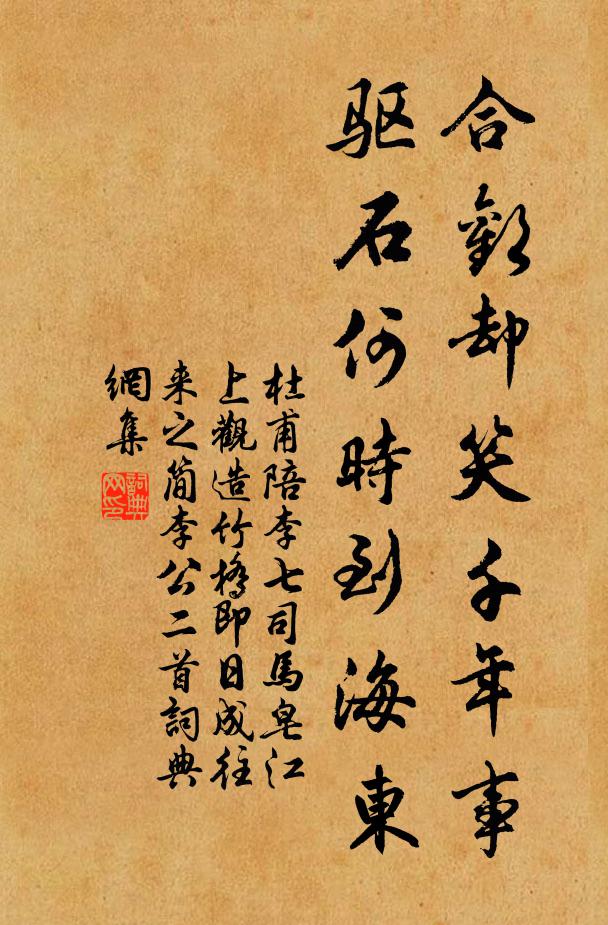 合歡却笑千年事
驱石何時到海東
杜甫陪李七司馬皂江
上觀造竹橋即日成往
来之简李公二首詞典
網集
詞典
网印